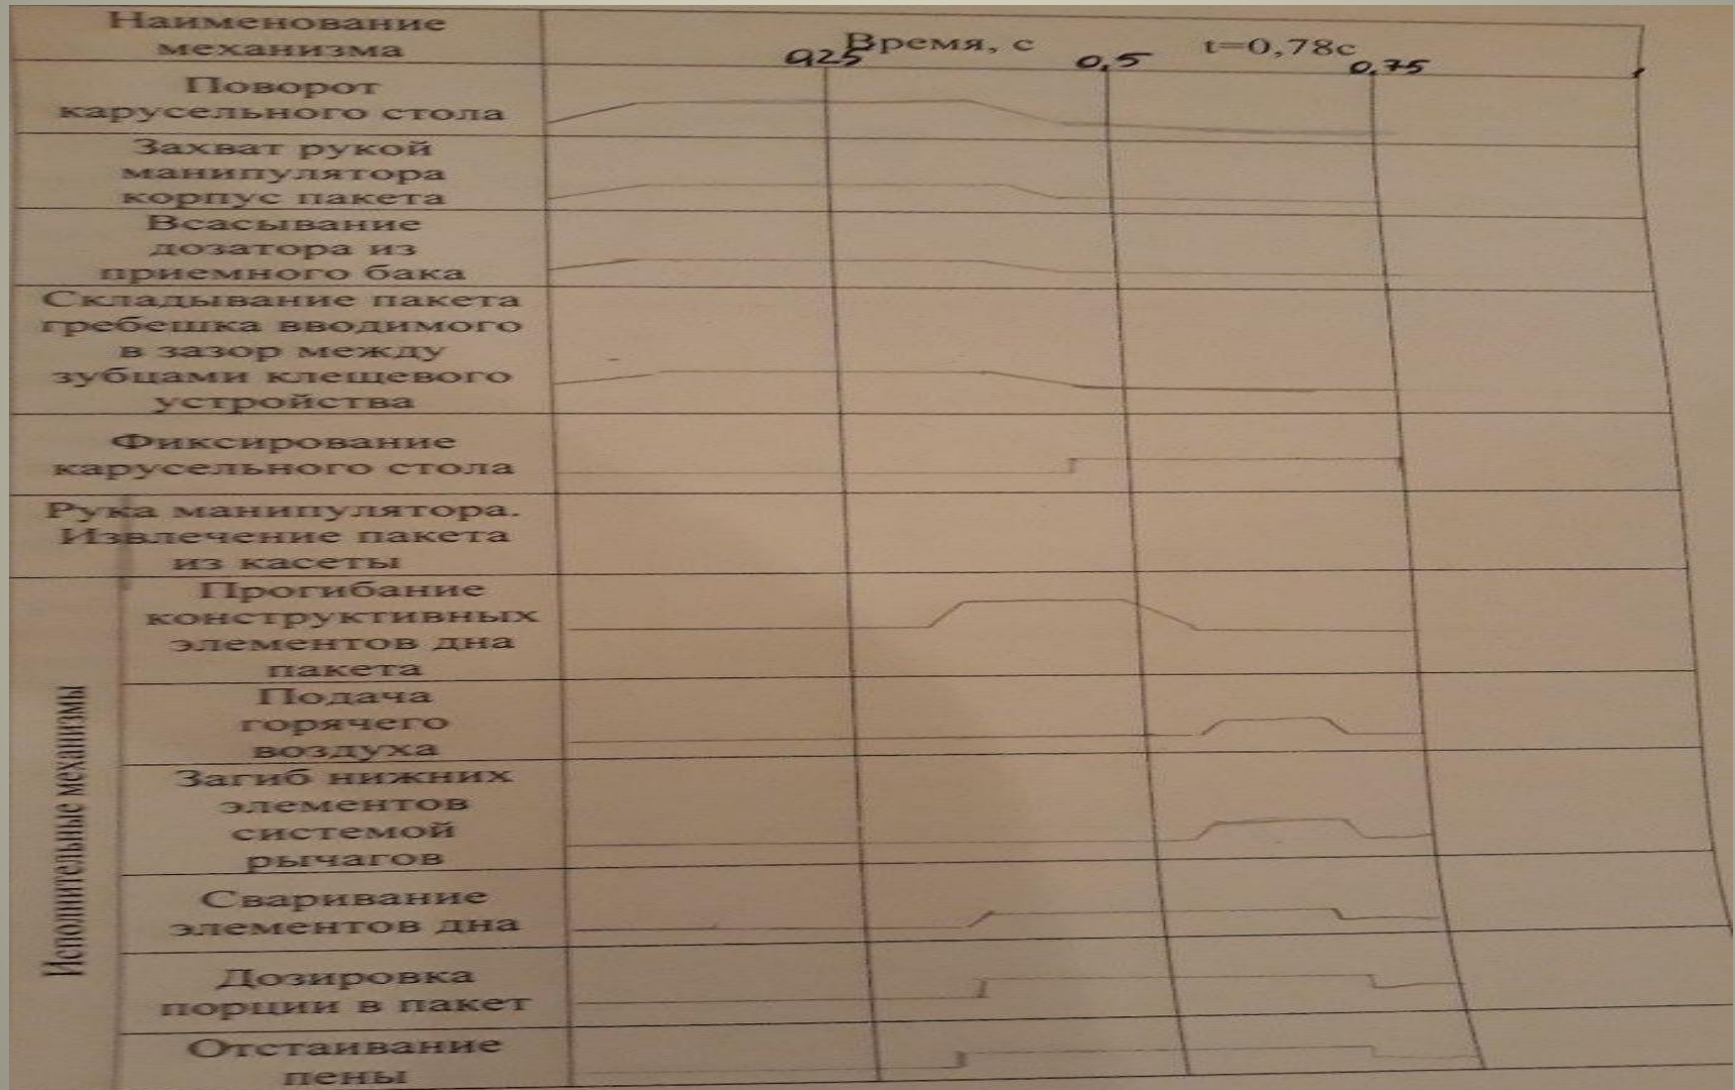 Наименование
механизма
Время, с
t=0,78с
0,25
0,5
0,75
Поворот
карусельного стола
Захват рукой
манипулятора
корпус пакета
Всасывание
дозатора из
приемного бака
Складывание пакета
гребешка вводимого
в зазор между
зубцами клещевого
устройства
Фиксирование
карусельного стола
Рука манипулятора.
Извлечение пакета
из касеты
Исполнительные механизмы
Прогибание
конструктивных
элементов дна
пакета
Подача
горячего
воздуха
Загиб нижних
элементов
системой
рычагов
Сваривание
элементов дна
Дозировка
порции в пакет
Отстаивание
пены